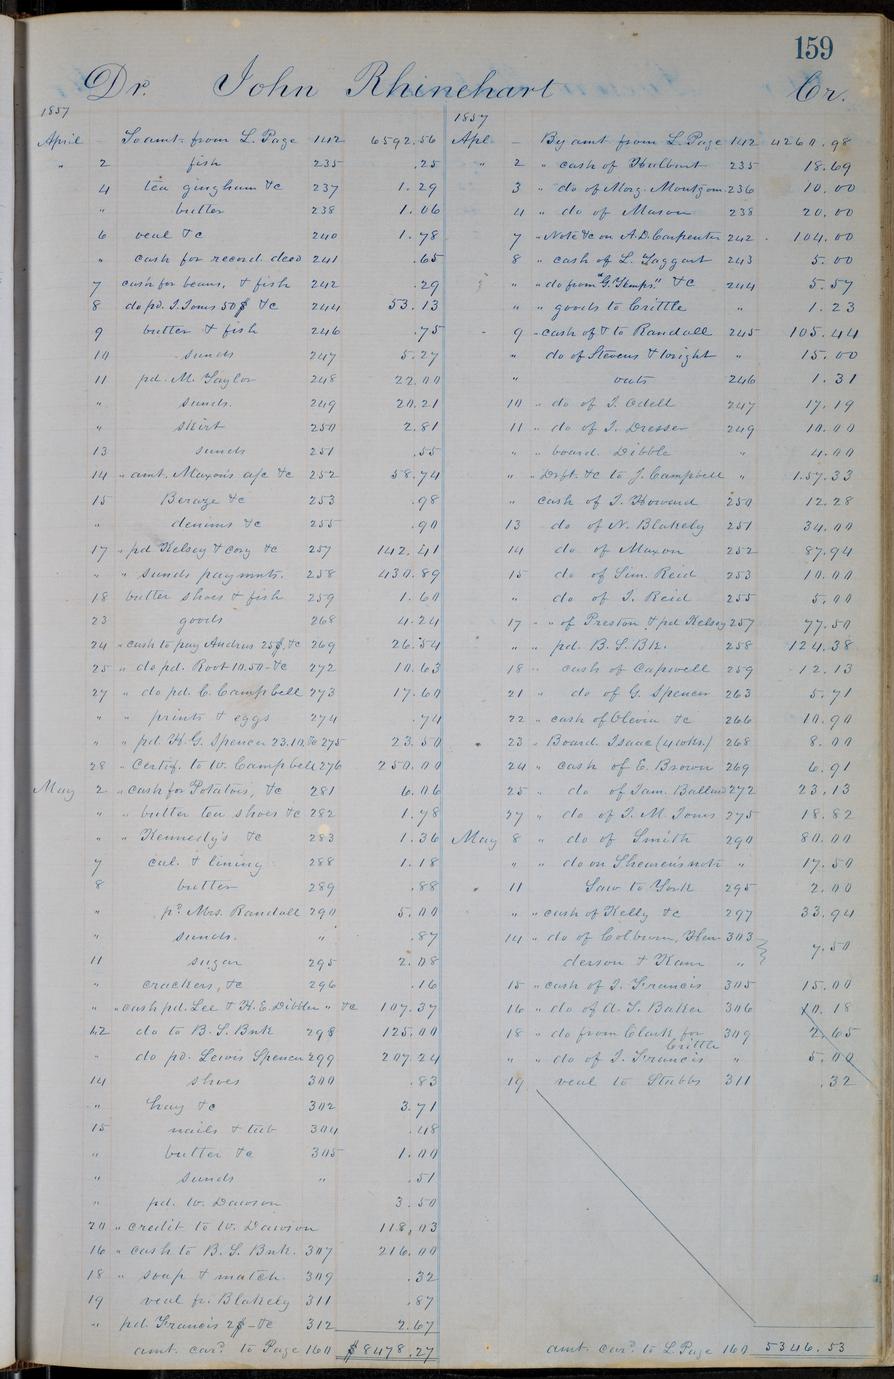 159
Dr. John Rhinehart Cr.
1857
April - To amt. from L. Page 142 6592.56
" 2 fish 235 .25
4 tea gingham &c 237 1.29
" butter 238 1.06
6 veal &c 240 1.78
" cash for record. deed 241 .65
7 cash for beans, & fish 242 .29
8 do pd. I. Jones 50$ &c 244 53.13
9 butter & fish 246 .75
10 sunds 247 5.27
11 pd. M. Taylor 248 22.00
" sunds. 249 20.21
" skirt 250 2.81
13 sunds 251 .55
14 " amt. Maxon's a/c &c 252 58.74
15 Beraze &c 253 .98
" denims &c 255 .90
17 " pd Kelsey & Cory &c 257 142.41
" " sunds paymnts. 258 430.89
18 butter shoes & fish 259 1.60
23 goods 268 4.24
24 " cash to pay Andrus 25$, &c 269 26.54
25 " do pd. Root 10.50 - &c 272 10.63
27 " do pd. C. Campbell 273 17.60
" " prints & eggs 274 .74
" " pd. H. G. Spencer 23.10, &c 275 23.50
28 " Certif. to W. Campbell 276 250.00
May 2 " cash for Potatoes, &c 281 6.06
" " butter tea shoes &c 282 1.78
" " Kennedy's &c 283 1.36
7 cal. & lining 288 1.18
8 butter 289 .88
" pd. Mrs. Randall 290 5.00
" sunds. " .87
11 sugar 295 2.08
" crackers, &c 296 .16
" " cash pd. Lee & H. E. Dibble " &c 107.37
12 do to B. S. Bnk 298 125.00
" do pd. Lewis Spencer 299 207.24
14 shoes 300 .83
" hay &c 302 3.71
15 nails & tub 304 .48
" butter &c 305 1.00
" sunds " .51
" pd. W. Dawson 3.50
20 " credit to W. Dawson 118,03
16 " cash to B. S. Bnk. 307 216.00
18 " soap & match. 309 .32
19 veal fr. Blakely 311 .87
" pd. Francis 2$ - &c 312 2.67
amt. card. to Page 160 $8478.27
1857
Apl. - By amt from L. Page 142 4260.98
" 2 " cash of Hulburt 235 18.69
3 " do of Morg. Montgom. 236 10.00
4 " do of Mason 238 20.00
7 " Note &c on A. D. Carpenter 242 104.00
8 " cash of L. Taggart 243 5.00
" " do from "G. Kemps" &c 244 5.57
" " goods to Crittle " 1.23
9 " cash of & to Randall 245 105.44
" do of Stevens & Wright " 15.00
" oats 246 1.31
10 " do of I. Odell 247 17.19
11 " do of I. Dresser 249 10.00
" " board. Dibble " 4.00
" " Drft. &c to J. Campbell " 157.33
" cash of I. Howard 250 12.28
13 do of N. Blakely 251 34.00
14 do of Maxon 252 87.94
15 do of Sim. Reid 253 10.00
" do of I. Reid 255 5.00
17 " " of Preston & pd Kelsey 257 77.50
" " pd. B. S. Bk. 258 124.38
18 " cash of Capwell 259 12.13
21 " do of G. Spencer 263 5.71
22 " cash of Olevin &c 266 10.90
23 " Board. Isaac (4 wks.) 268 8.00
24 " cash of E. Brown 269 6.91
25 " do of Sam. Ballard 272 23,13
27 " do of I. M. Jones 275 18.82
May 8 " do of Smith 290 80.00
" " do on Shearer's note " 17.50
11 Saw to York 295 2.00
" " cash of Kelly &c 297 33.94
14 " do of Colburn, Hen- 303
derson & Kan " 7.50
15 " cash of I. Francis 305 15.00
16 " do of A. S. Baker 306 10.18
18 " do from Clark for 309 2.65
Crittle
" " do of I. Francis " 5.00
19 veal to Stubbs 311 .32
amt. card. to L. Page 160 5346.53